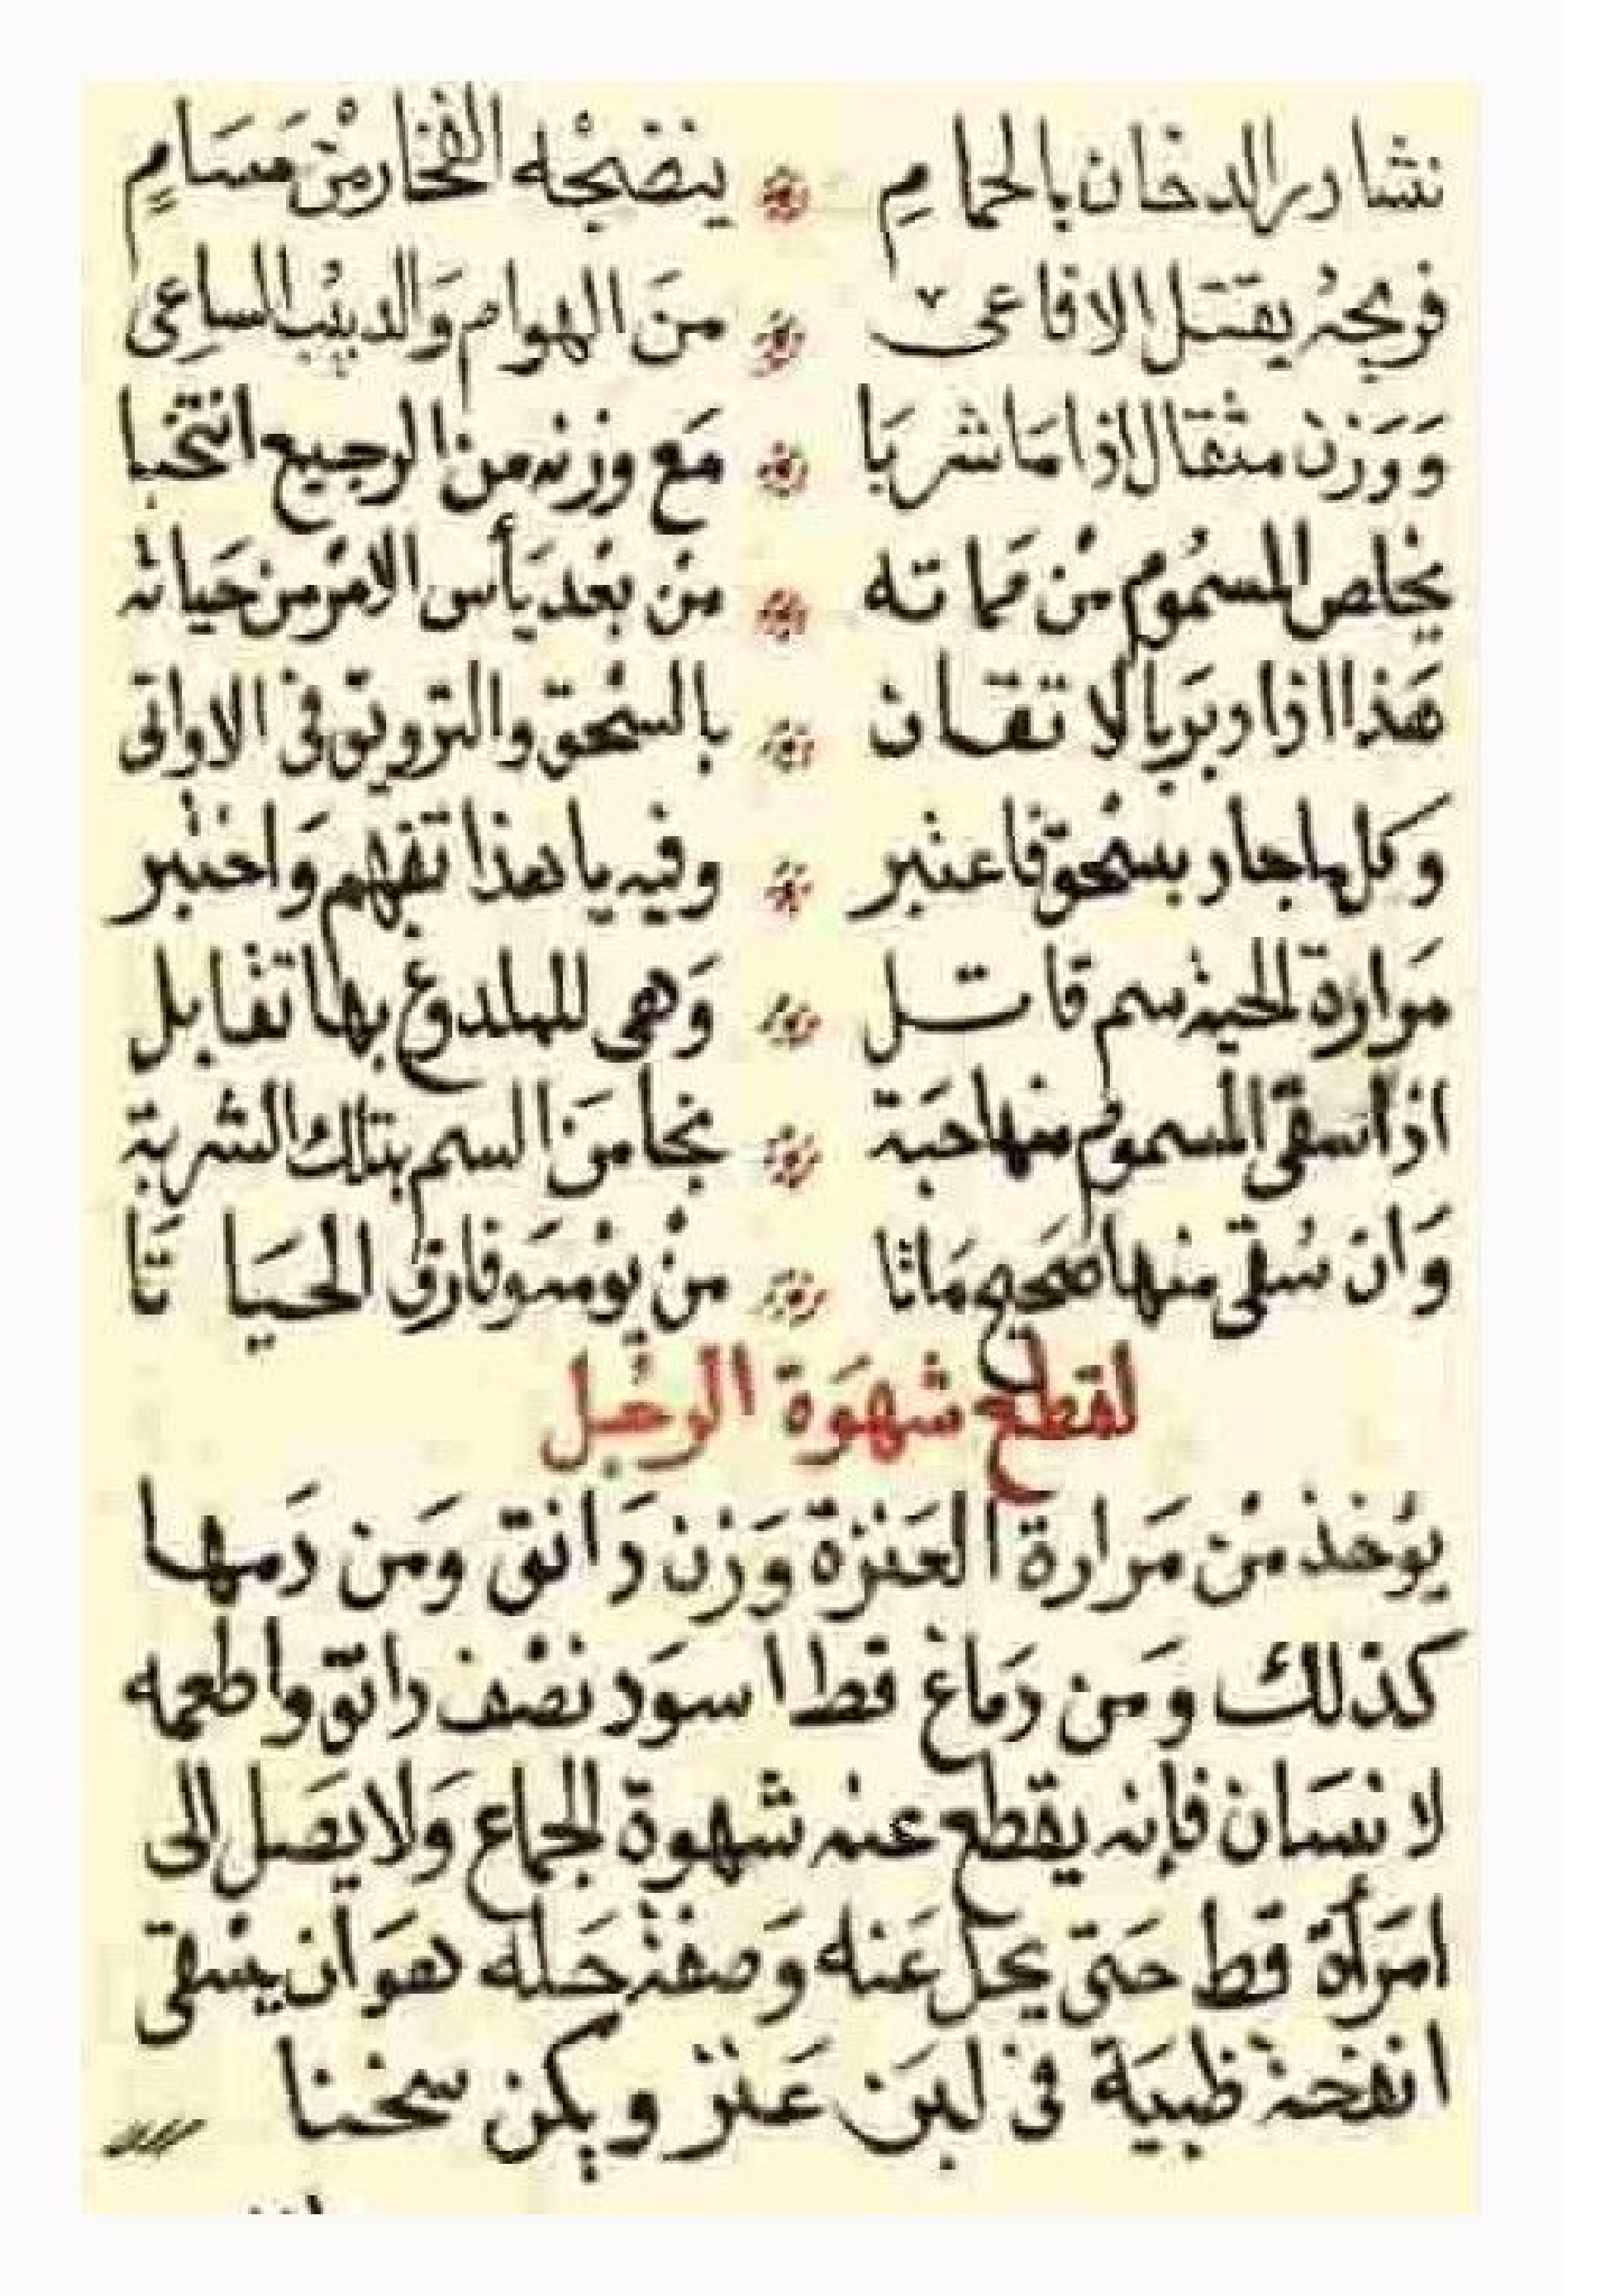 نشادر الدخان بالحمامِ ينضجْه الفخار منْ مَسَامٍ
فريحهُ يقتَل الافاعى منَ الهوام وَالدبيْب الساعِى
وَوَزن مثقال اذا مَا شربَا مَع وزنه من الرجيع انتخبا
يخْلص المسمُوم منْ مماته منْ بعْد يَأس الامْر من حَياته
هَذا اذا دبرَ بالاتقان بالسحْق والترويق فى الاوانى
وكل ما جاد بسحْق فاعتبر وفيه يا هذا تفهم وَاختبر
مَرارة الحية سم قاتل وَهى للملدوغ بها تقابل
اذا سقى المسموم منها حَبة نجا منَ السم بتلك الشربة
وَان سُقى منها صَحيح مَاتا منْ يوْمه وَفارق الحَياتَا
لقطع شهوَة الرجُل
يوْخذ منْ مَرارة العَنزة وَزن دَانق وَمن دَمها
كذلك وَمن دَماغ قط اسوَد نصْف دانق واطعمه
لانسَان فإنه يقطع عنه شهوة الجماع وَلا يَصَل الى
امرَأة قط حَتى يحَل عَنه وَصفة حَله هوَ ان يسْقى
انفحة ظبيَة فى لبَن عَنز ويكن سخنا